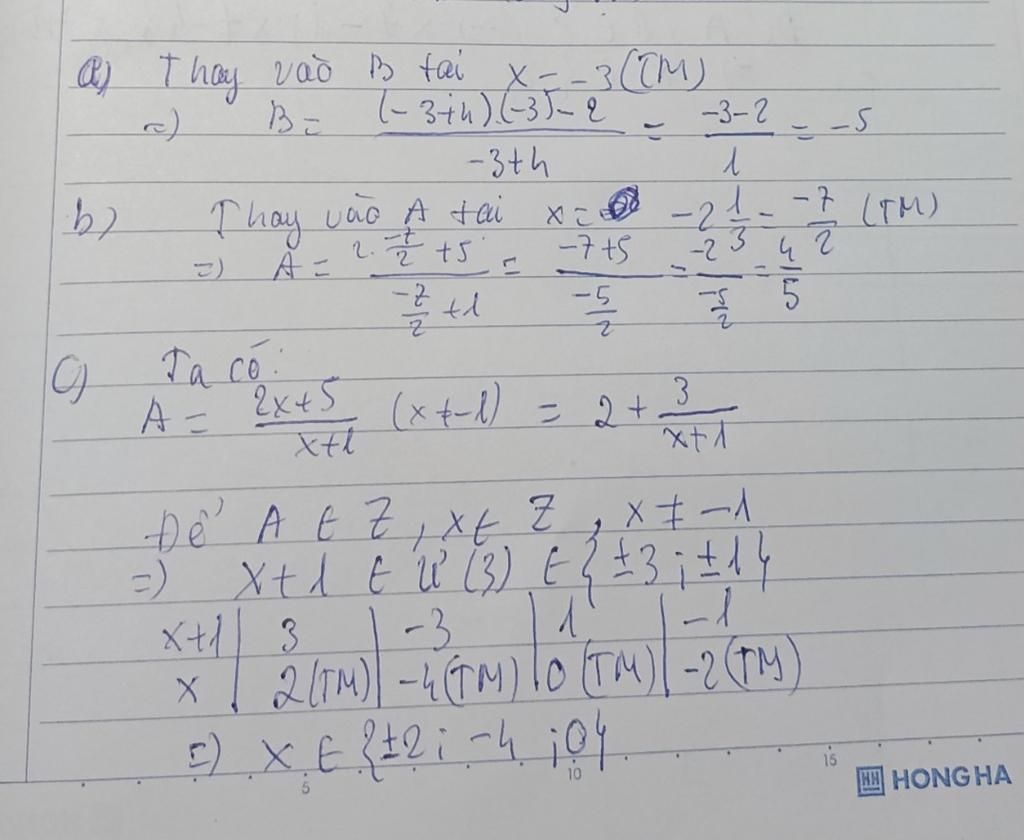 a) Thay vào B tại x = -3 (TM)
=) B = \frac{(-3+4).(-3)-2}{-3+4} = \frac{-3-2}{1} = -5
b) Thay vào A tại x = -2\frac{1}{3} = \frac{-7}{2} (TM)
=) A = \frac{2.\frac{-7}{2}+5}{\frac{-7}{2}+1} = \frac{-7+5}{\frac{-5}{2}} = \frac{-2}{\frac{-5}{2}} = \frac{4}{5}
c) Ta có:
A = \frac{2x+5}{x+1} (x ≠ -1) = 2 + \frac{3}{x+1}
Để A ∈ Z, x ∈ Z, x ≠ -1
=) x+1 ∈ Ư(3) ∈ {±3; ±1}
x+1 | 3 | -3 | 1 | -1
x | 2 (TM) | -4 (TM) | 0 (TM) | -2 (TM)
=) x ∈ {±2; -4; 0}
5 10 15
HH HONG HA